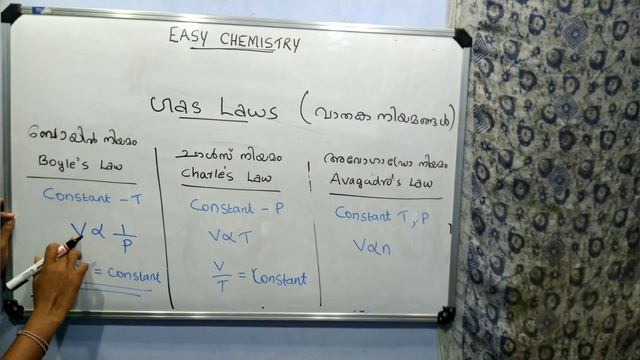 EASY CHEMISTRY
Gas Laws (വാതക നിയമങ്ങൾ)
ബോയിൽ നിയമം
Boyle's Law
Constant - T
V ∝ 1/P
= constant
ചാൾസ് നിയമം
Charle's Law
Constant - P
V ∝ T
V/T = Constant
അവോഗാഡ്രോ നിയമം
Avagadro's Law
Constant T, P
V ∝ n